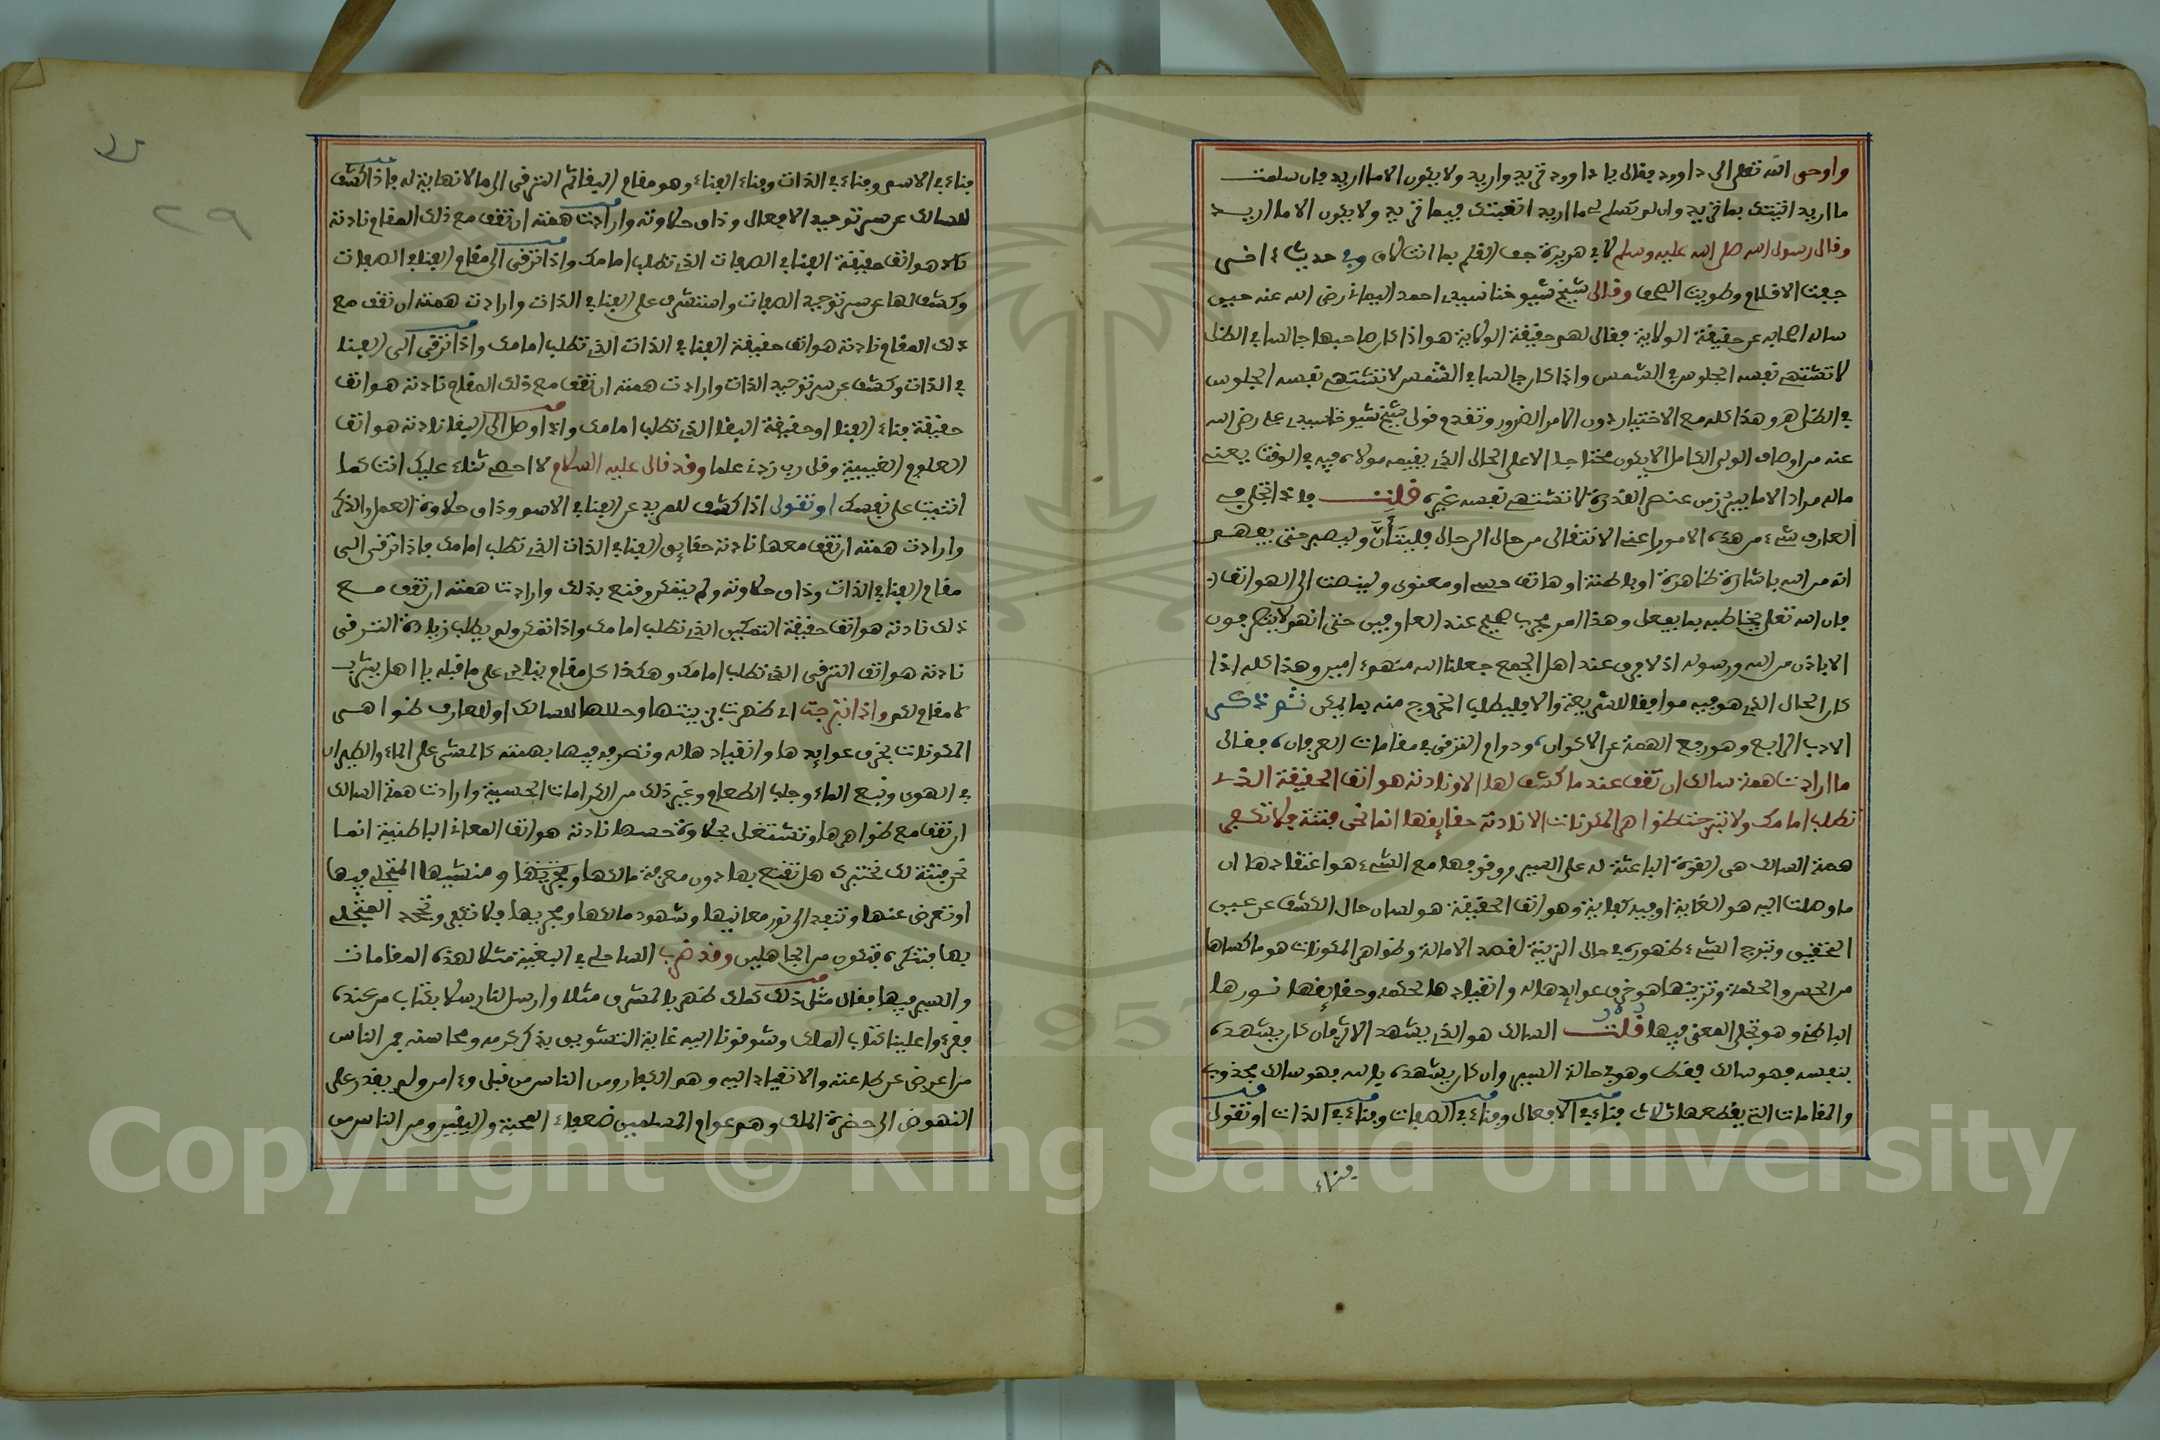 واوحى الله تعلى الى داوود فقال يا داوود تريد واريد ولا يكون الا ما اريد فان سلمت
ما اريد اتيتك بما تريد وان لم تسلم لي ما اريد اتعبتك فيما تريد ولا يكون الا ما اريد
وقال رسول الله صلى الله عليه وسلم لابي هريرة جف القلم بما انت لاق وفي حديث ءاخر
جفت الاقلام وطويت الصحف وقال شيخ شيوخنا سيدي احمد اليماني رضي الله عنه حين
ساله اصحابه عن حقيقة الولاية فقال لهم حقيقة الولاية هو اذا كان صاحبها جالسا في الظل
لا تشتهي نفسه الجلوس في الشمس واذا كان جالسا في الشمس لا تشتهي نفسه الجلوس
في الظل وهذا كله مع الاختيار دون الامر الضرور وتقدم قول شيخ شيوخنا سيدي علي رضي الله
عنه من اوصاف الولي الكامل الا يكون محتاجا الا على الحال الذي يقيمه مولاه فيه في الوقت يعني
ماله مراد الا ما يبرز من عنصر القدرة لا تشتهي نفسه غيره قلت فاذا تجلى في
العارف شيء من هذه الامور اعني الانتقال من حال الى حال فليتأن وليصبر حتى يفهم
انه من الله باشارة ظاهرة او باطنة او هاتف حسي او معنوي ولينصت الى الهواتف
فان الله تعلى يخاطبه بما يفعل وهذا امر مجرب صحيح عند العارفين حتى انهم لا يتصرفون
الا باذن من الله ورسوله اذ لا فرق عند اهل الجمع جعلنا الله منهم ءامين وهذا كله اذا
كان الحال الذي هو فيه موافقا للشريعة والا فليطلب الخروج منه بما يمكن ثم ذكر
الادب الرابع وهو رفع الهمة عن الاكوان ودوام الترقي في مقامات العرفان فقال
ما ارادت همة سالك ان تقف عند ما كشف لها الا ونادته هواتف الحقيقة الذي
تطلب امامك ولا تبرجت ظواهر المكونات الا نادته حقايقها انما نحن فتنة فلا تكفر
همة السالك هي القوة الباعثة له على السير ووقوفها مع الشيء هو اعتقادها ان
ما وصلت اليه هو الغاية او فيه كفاية وهواتف الحقيقة هو لسان حال الكشف عن عين
التحقيق وتبرج الشيء ظهوره في حال الزينة لقصد الامالة وظواهر المكونات هو ما كساها
من الحس والحكمة وتزينها هو خرق عوايدها له وانقيادها لحكمه وحقايقها نورها
الباطني وهو تجلي المعنى فيها قلت السالك هو الذي يشهد الاثر فان كان يشهده
بنفسه فهو سالك فقط وهو في حالة السير وان كان يشهده بالله فهو سالك مجذوب
والمقامات التي يقطعها ثلاث فناء في الافعال وفناء في الصفات وفناء في الذات او تقول
فناء
٢٩
فناء في الاسم وفناء في الذات وفناء الفناء وهو مقام البقا ثم الترقي الى ما لا نهاية له فاذا كشف
للسالك عن سر توحيد الافعال وذاق حلاوته وارادت همته ان تقف مع ذلك المقام نادته
هواتف حقيقة الفناء في الصفات الذي تطلب امامك واذا ترقى الى مقام الفناء في الصفات
وكشف لها عن سر توحيد الصفات واستشرف على الفناء في الذات وارادت همته ان تقف مع
ذلك المقام نادته هواتف حقيقة الفناء في الذات الذي تطلب امامك واذا ترقى الى الفنا
في الذات وكشف عن سر توحيد الذات وارادت همته ان تقف مع ذلك المقام نادته هواتف
حقيقة فناء الفنا او حقيقة البقا الذي تطلب امامك واذا وصل الى البقا نادته هواتف
العلوم الغيبية وقل رب زدني علما وقد قال عليه السلام لا احصي ثناء عليك انت كما
اثنيت على نفسك او تقول اذا كشف للمريد عن الفناء في الاسم وذاق حلاوة العمل والذكر
وارادت همته ان تقف معها نادته حقايق الفناء في الذات الذي تطلب امامك فاذا ترقى الى
مقام الفناء في الذات وذاق حلاوته ولم يتمكن وقنع بذلك وارادت همته ان تقف مع
ذلك نادته هواتف حقيقة التمكين الذي تطلب امامك واذا تمكن ولم يطلب زيادة الترقي
نادته هواتف الترقي الذي تطلب امامك وهكذا كل مقام ينادي على ما قبله يا اهل يثرب
لا مقام لكم واذا تبرجت اي ظهرت بزينتها وحللها للسالك او للعارف ظواهر
المكونات بخرق عوايدها وانقيادها له وتصرفه فيها بهمته كالمشي على الماء والطيران
في الهوى ونبع الماء وجلب الطعام وغير ذلك من الكرامات الحسية وارادت همة السالك
ان تقف مع ظواهرها وتشتغل بحلاوة حسها نادته هواتف المعاني الباطنية انما
نحن فتنة لك نختبرك هل تقنع بها دون معرفة مالكها ومجريها ومنشيها المتجلي فيها
او تعرض عنها وتنفذ الى نور معانيها وشهود مالكها ومجريها فلا تكفر وتجحد المتجلي
بها فتنكره فتكون من الجاهلين وقد ضرب الساحلي في البغية مثلا لهذه المقامات
والسير فيها فقال مثل ذلك كملك ظهر بالمشرق مثلا وارسل الينا رسلا بكتاب من عنده
فقرءوا علينا كتاب الملك وشوقونا اليه غاية التشويق بذكر كرمه ومحاسنه فمن الناس
من اعرض عن طاعته والانقياد اليه وهو الكفار ومن الناس من قبل وءامن ولم يقدر على
النهوض الى حضرة الملك وهم عوام المسلمين ضعفاء المحبة واليقين ومن الناس من
Copyright © King Saud University
1957